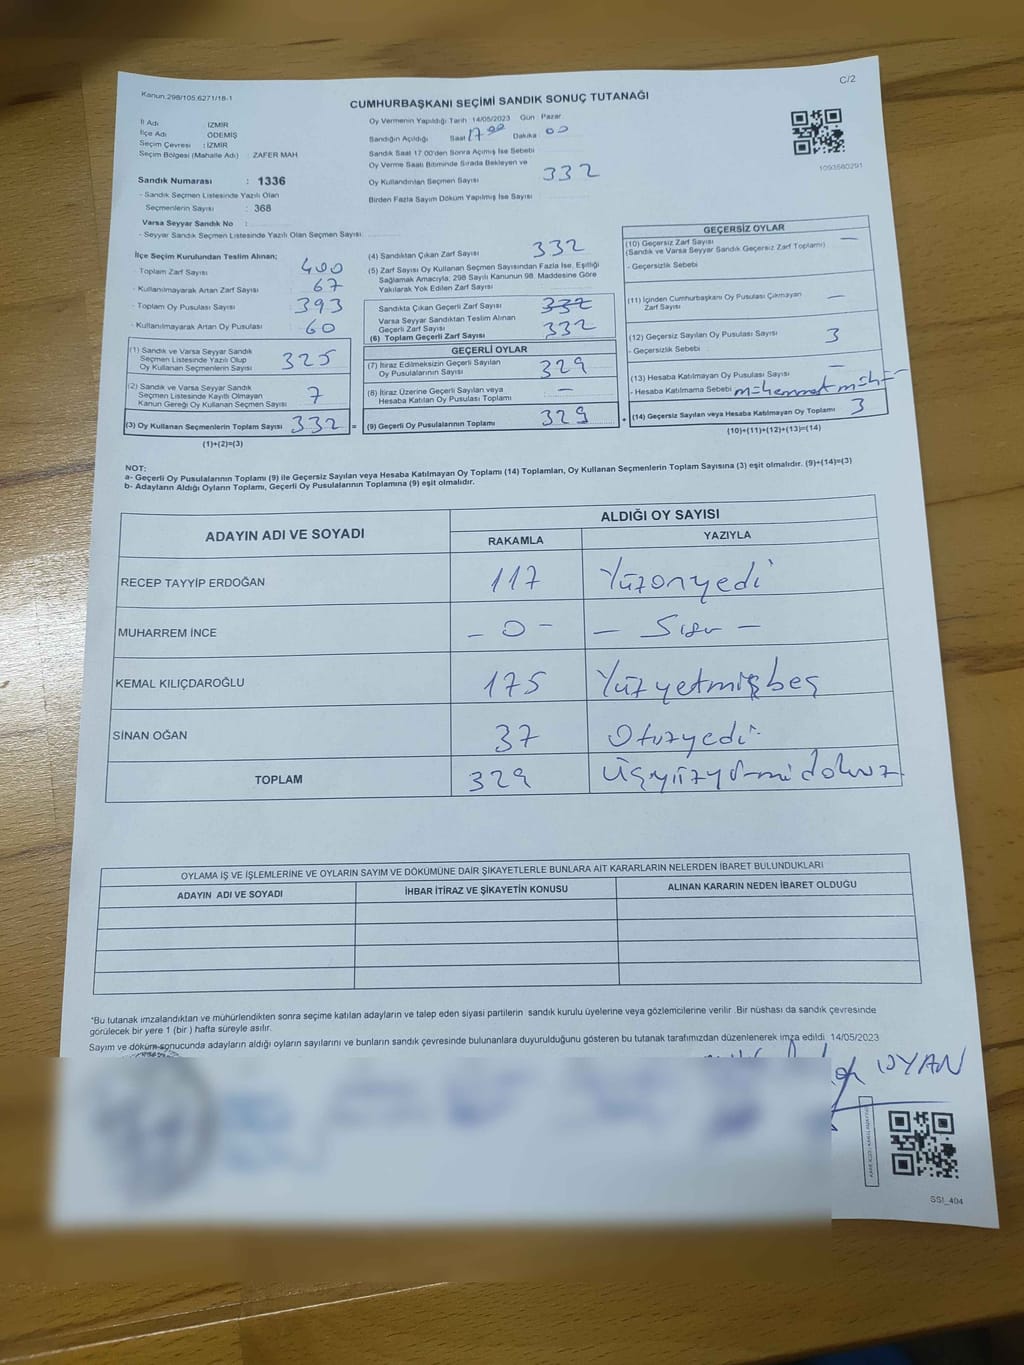 C/2
Kanun:298/105,6271/18-1
CUMHURBAŞKANI SEÇİMİ SANDIK SONUÇ TUTANAĞI
İl Adı : İZMİR
İlçe Adı : ÖDEMİŞ
Seçim Çevresi : İZMİR
Seçim Bölgesi (Mahalle Adı) : ZAFER MAH
Sandık Numarası : 1336
- Sandık Seçmen Listesinde Yazılı Olan
Seçmenlerin Sayısı : 368
Varsa Seyyar Sandık No :
- Seyyar Sandık Seçmen Listesinde Yazılı Olan Seçmen Sayısı:
Oy Vermenin Yapıldığı Tarih 14/05/2023 Gün Pazar
Sandığın Açıldığı Saat 17 00 Dakika 00
Sandık Saat 17.00'den Sonra Açılmış İse Sebebi
Oy Verme Saati Bitiminde Sırada Bekleyen ve
Oy Kullandırılan Seçmen Sayısı 332
Birden Fazla Sayım Döküm Yapılmış İse Sayısı
1093580291
İlçe Seçim Kurulundan Teslim Alınan;
- Toplam Zarf Sayısı : 400
- Kullanılmayarak Artan Zarf Sayısı : 67
- Toplam Oy Pusulası Sayısı : 393
- Kullanılmayarak Artan Oy Pusulası : 60
(1) Sandık ve Varsa Seyyar Sandık
Seçmen Listesinde Yazılı Olup
Oy Kullanan Seçmenlerin Sayısı 325
(2) Sandık ve Varsa Seyyar Sandık
Seçmen Listesinde Kayıtlı Olmayan
Kanun Gereği Oy Kullanan Seçmen Sayısı 7
(3) Oy Kullanan Seçmenlerin Toplam Sayısı 332 =
(1)+(2)=(3)
(4) Sandıktan Çıkan Zarf Sayısı 332
(5) Zarf Sayısı Oy Kullanan Seçmen Sayısından Fazla İse, Eşitliği
Sağlamak Amacıyla; 298 Sayılı Kanunun 98. Maddesine Göre
Yakılarak Yok Edilen Zarf Sayısı
Sandıkta Çıkan Geçerli Zarf Sayısı 332
Varsa Seyyar Sandıktan Teslim Alınan
Geçerli Zarf Sayısı
(6) Toplam Geçerli Zarf Sayısı 332
GEÇERLİ OYLAR
(7) İtiraz Edilmeksizin Geçerli Sayılan
Oy Pusulalarının Sayısı 329
(8) İtiraz Üzerine Geçerli Sayılan veya
Hesaba Katılan Oy Pusulası Toplamı —
(9) Geçerli Oy Pusulalarının Toplamı 329 +
GEÇERSİZ OYLAR
(10) Geçersiz Zarf Sayısı —
(Sandık ve Varsa Seyyar Sandık Geçersiz Zarf Toplamı)
- Geçersizlik Sebebi
(11) İçinden Cumhurbaşkanı Oy Pusulası Çıkmayan
Zarf Sayısı —
(12) Geçersiz Sayılan Oy Pusulası Sayısı 3
- Geçersizlik Sebebi
(13) Hesaba Katılmayan Oy Pusulası Sayısı —
- Hesaba Katılmama Sebebi
(14) Geçersiz Sayılan veya Hesaba Katılmayan Oy Toplamı 3
(10)+(11)+(12)+(13)=(14)
NOT:
a- Geçerli Oy Pusulalarının Toplamı (9) ile Geçersiz Sayılan veya Hesaba Katılmayan Oy Toplamı (14) Toplamları, Oy Kullanan Seçmenlerin Toplam Sayısına (3) eşit olmalıdır. (9)+(14)=(3)
b- Adayların Aldığı Oyların Toplamı, Geçerli Oy Pusulalarının Toplamına (9) eşit olmalıdır.
ADAYIN ADI VE SOYADI
ALDIĞI OY SAYISI
RAKAMLA YAZIYLA
RECEP TAYYİP ERDOĞAN 117 Yüzonyedi
MUHARREM İNCE - 0 - — Sıfır —
KEMAL KILIÇDAROĞLU 175 Yüzyetmişbeş
SİNAN OĞAN 37 Otuzyedi
TOPLAM 329 Üçyüzyirmidokuz
OYLAMA İŞ VE İŞLEMLERİNE VE OYLARIN SAYIM VE DÖKÜMÜNE DAİR ŞİKAYETLERLE BUNLARA AİT KARARLARIN NELERDEN İBARET BULUNDUKLARI
ADAYIN ADI VE SOYADI İHBAR İTİRAZ VE ŞİKAYETİN KONUSU ALINAN KARARIN NEDEN İBARET OLDUĞU
*Bu tutanak imzalandıktan ve mühürlendikten sonra seçime katılan adayların ve talep eden siyasi partilerin sandık kurulu üyelerine veya gözlemcilerine verilir .Bir nüshası da sandık çevresinde
görülecek bir yere 1 (bir ) hafta süreyle asılır.
Sayım ve döküm sonucunda adayların aldığı oyların sayılarını ve bunların sandık çevresinde bulunanlara duyurulduğunu gösteren bu tutanak tarafımızdan düzenlenerek imza edildi. 14/05/2023
UYAN
SSI_404